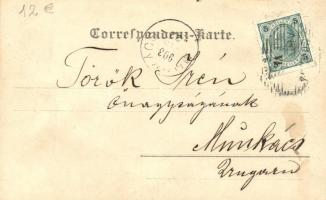 12 €
Correspondenz-Karte.
Török Irén
Őnagyságának
Munkács
Ungarn